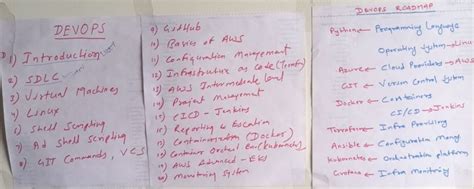 DEVOPS
1) Introduction
2) SDLC
3) Virtual Machines
4) Linux
5) Shell Scripting
7) Ad Shell Scripting
8) GIT Commands, VCS
9) GitHub
10) Basics of AWS
11) Configuration Management
12) Infrastructure as Code (Terraform)
13) AWS Intermediate Level
14) Project Management
15) CICD - Jenkins
16) Reporting &
17) Containerization (Docker)
18) Container Orchest (Kubernetes)
19) AWS Advanced - EKS
20) Monitoring System
DEVOPS ROADMAP
Python ← Programming Language
Operating System → Linux
Azure ← Cloud Providers → AWS
GIT ← Version Control System
Docker ← Containers
CI/CD → Jenkins
Terraform ← Infra Provising
Ansible ← Configuration Manag
Kubernetes ← Orchestration platform
Grafana ← Infra Monitoring